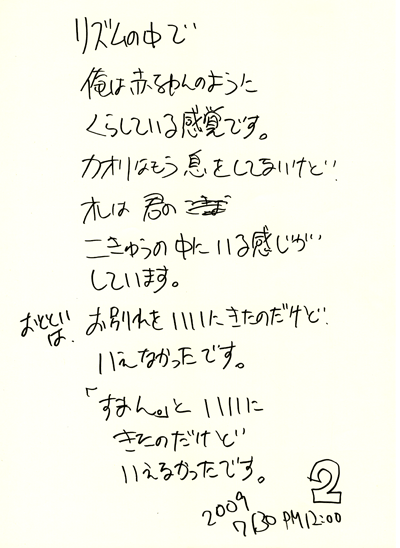 リズムの中で
俺は赤ちゃんのように
くらしている感覚です。
カオリはもう息をしてないけど
オレは 君の
こきゅうの中にいる感じが
しています。
おとといは、お別れを いいにきたのだけど
いえなかったです。
「すまん。」と いいに
きたのだけど
いえなかったです。
2
2009
7/30 PM12:00